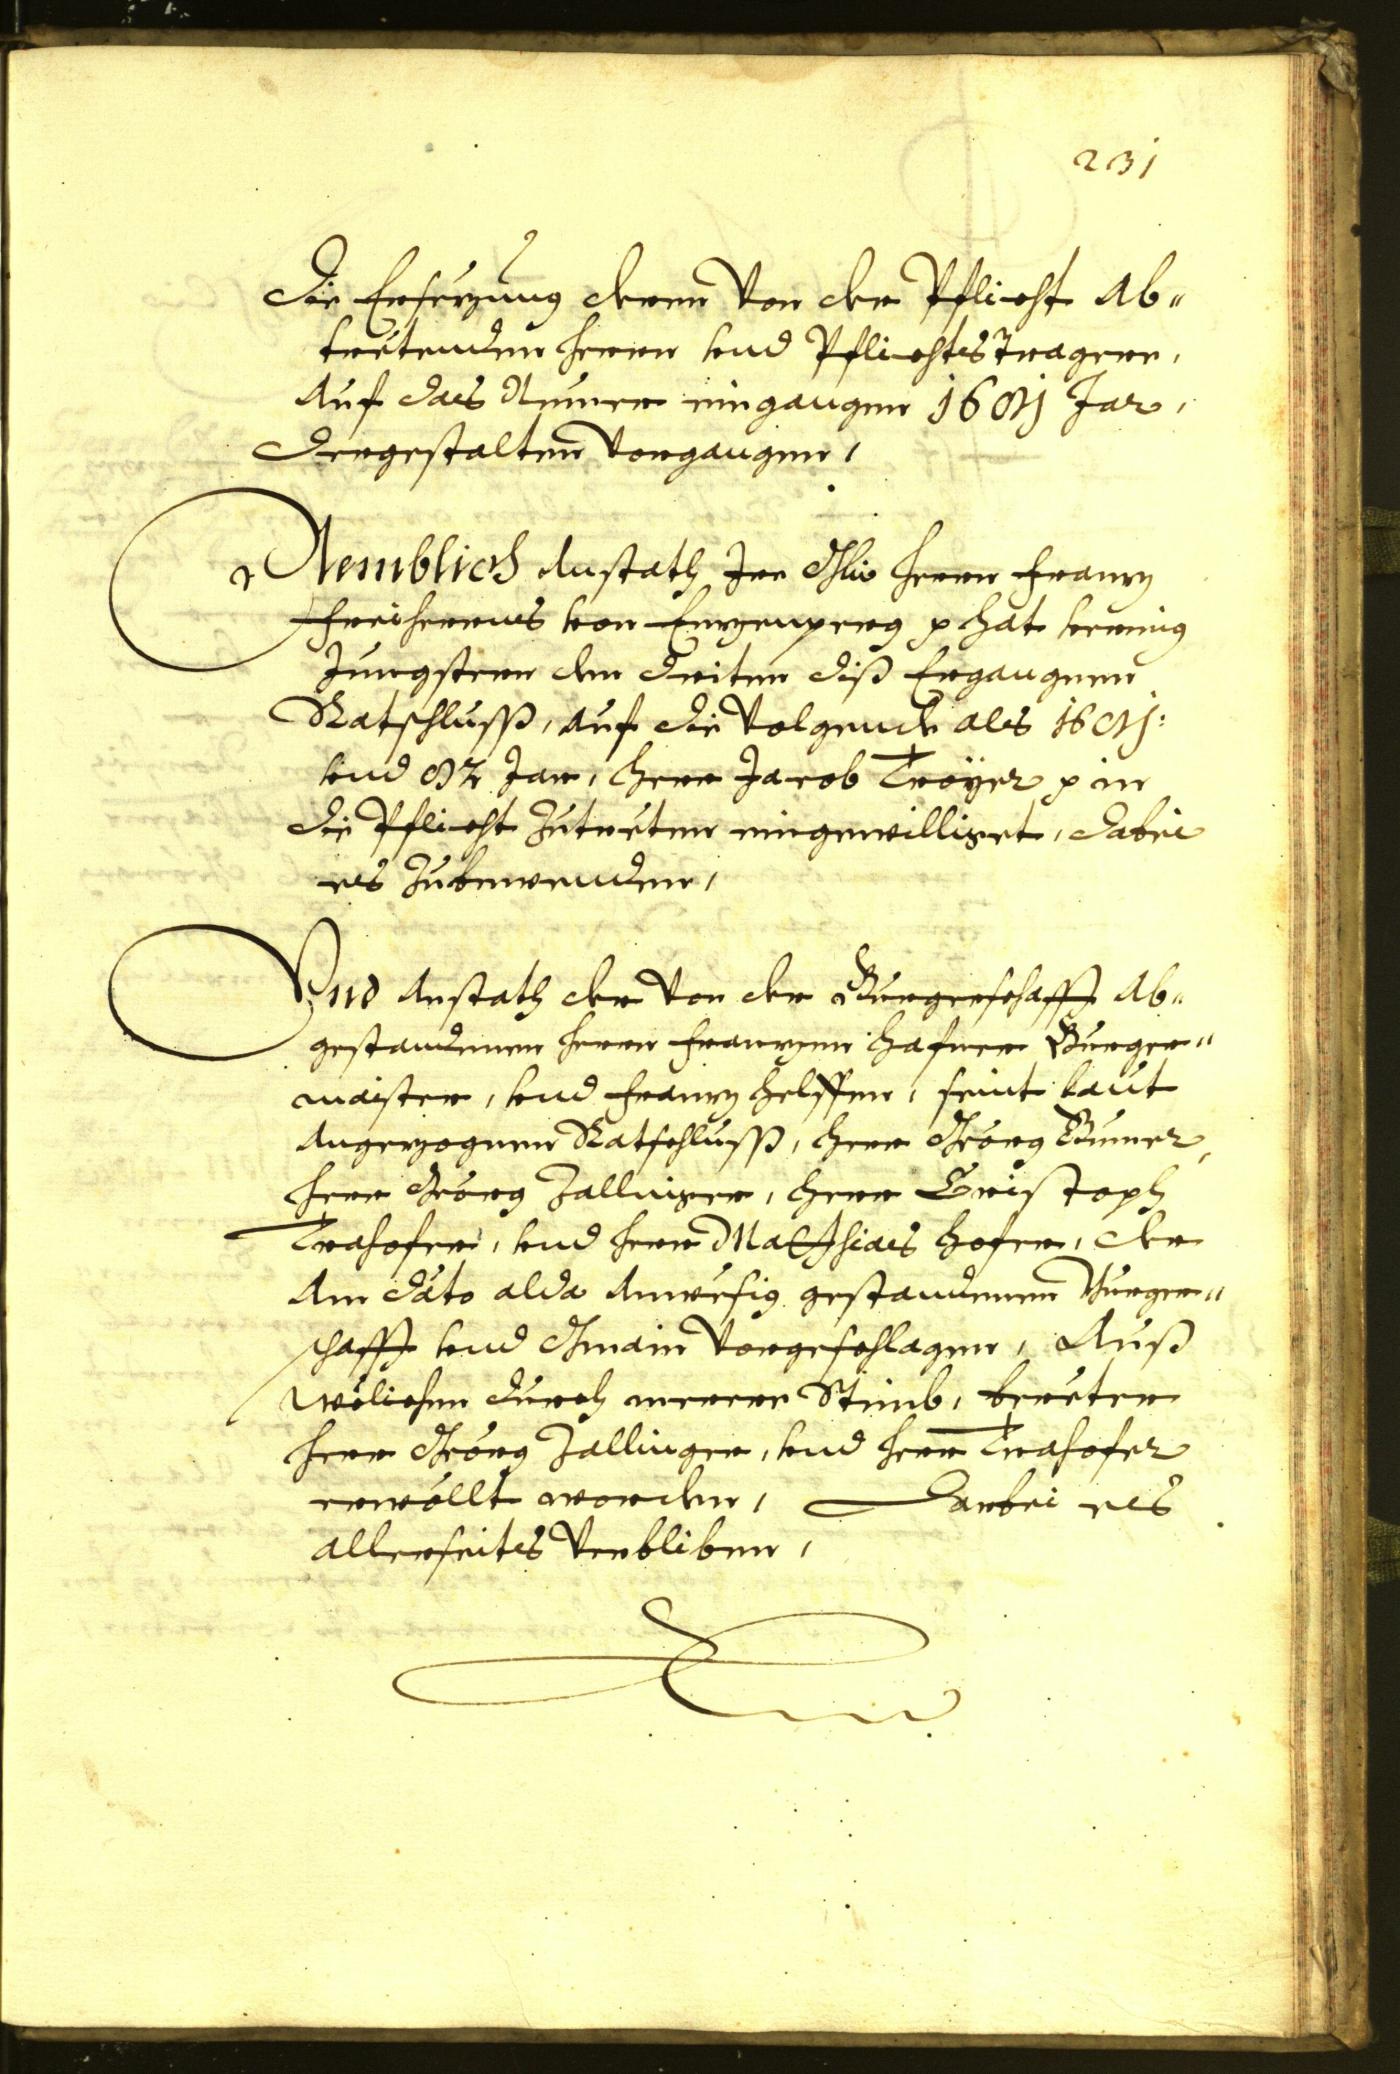 231
Die Ersezung deren Von der Pflicht Ab=
tretenden herren und PflichtsTragern,
Auf das Neuen eingangen 1681 Jar,
Dergestalten Vorgangen,
Nemblich Anstath Irr Gl: herrn Franz
Freiherrns von Enzenperg p hat vermög
Jungstern den driten diß Ergangnen
Ratschluss, auf die Volgende als 1681:
und 82 Jar, Herr Jacob Troÿer p in
die Pflicht Zutreten eingewilliget, dabei
es Zubewenden,
Und Anstath der Von der Burgerschafft Ab=
gestandenen herrn Franzen Hafner Burger=
maister, und Franz Helffen, seint laut
angezognen Ratschluss, Herr Georg
herr Georg Zallinger, Herr Cristoph
Trahofer, und herr Mathias Hofer, der
Am dato alda Anwesig gestandenen Burger=
schafft und Gmain Vorgeschlagen, Auß
welichen durch merere Stimb, beruerter
herr Georg Zallinger, und herr Trahofer
erwöllt worden, Darbei es
allerseits Verbliben,